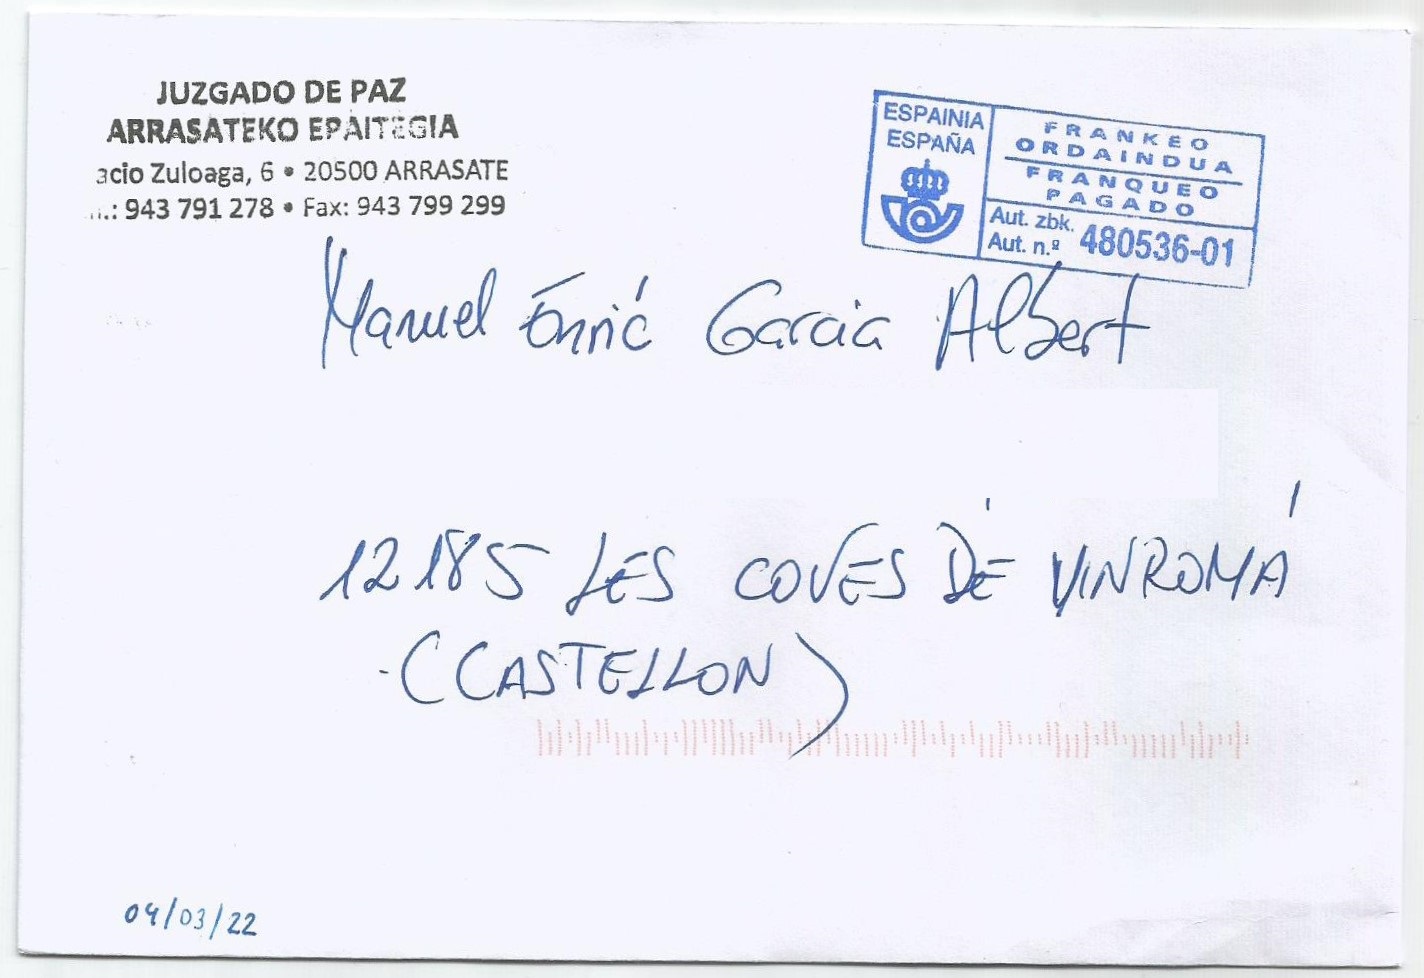 JUZGADO DE PAZ
ARRASATEKO EPAITEGIA
acio Zuloaga, 6 • 20500 ARRASATE
.: 943 791 278 • Fax: 943 799 299
ESPAINIA
ESPAÑA
FRANKEO
ORDAINDUA
FRANQUEO
PAGADO
Aut. zbk.
Aut. n.º 480536-01
Manuel Enric Garcia Albert
12185 LES COVES DE VINROMÁ
(CASTELLON)
04/03/22